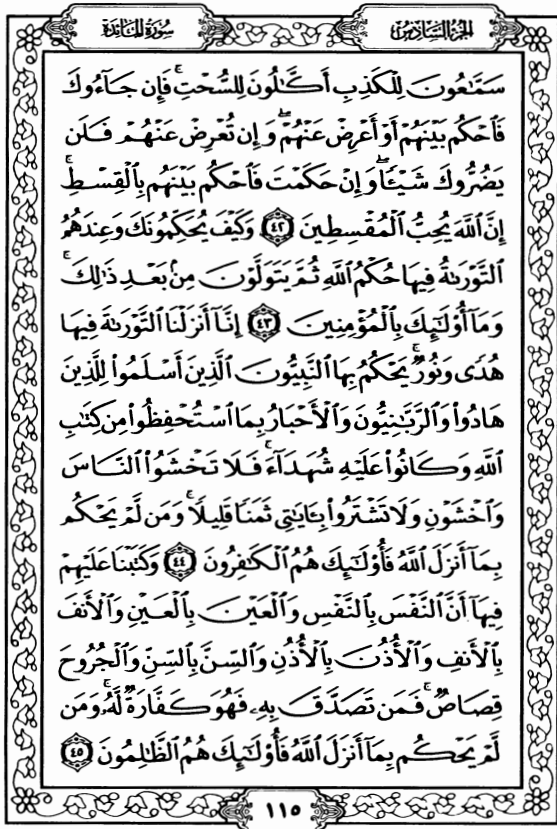 سُورَةُ المَائدة
الجزء السَّادس
سَمَّـٰعُونَ لِلْكَذِبِ أَكَّـٰلُونَ لِلسُّحْتِ ۚ فَإِن جَآءُوكَ
فَٱحْكُم بَيْنَهُمْ أَوْ أَعْرِضْ عَنْهُمْ ۖ وَإِن تُعْرِضْ عَنْهُمْ فَلَن
يَضُرُّوكَ شَيْـًٔا ۖ وَإِنْ حَكَمْتَ فَٱحْكُم بَيْنَهُم بِٱلْقِسْطِ ۚ
إِنَّ ٱللَّهَ يُحِبُّ ٱلْمُقْسِطِينَ ٤٢ وَكَيْفَ يُحَكِّمُونَكَ وَعِندَهُمُ
ٱلتَّوْرَىٰةُ فِيهَا حُكْمُ ٱللَّهِ ثُمَّ يَتَوَلَّوْنَ مِنۢ بَعْدِ ذَٰلِكَ ۚ
وَمَآ أُو۟لَـٰٓئِكَ بِٱلْمُؤْمِنِينَ ٤٣ إِنَّآ أَنزَلْنَا ٱلتَّوْرَىٰةَ فِيهَا
هُدًى وَنُورٌ ۚ يَحْكُمُ بِهَا ٱلنَّبِيُّونَ ٱلَّذِينَ أَسْلَمُوا۟ لِلَّذِينَ
هَادُوا۟ وَٱلرَّبَّـٰنِيُّونَ وَٱلْأَحْبَارُ بِمَا ٱسْتُحْفِظُوا۟ مِن كِتَـٰبِ
ٱللَّهِ وَكَانُوا۟ عَلَيْهِ شُهَدَآءَ ۚ فَلَا تَخْشَوُا۟ ٱلنَّاسَ
وَٱخْشَوْنِ وَلَا تَشْتَرُوا۟ بِـَٔايَـٰتِى ثَمَنًا قَلِيلًا ۚ وَمَن لَّمْ يَحْكُم
بِمَآ أَنزَلَ ٱللَّهُ فَأُو۟لَـٰٓئِكَ هُمُ ٱلْكَـٰفِرُونَ ٤٤ وَكَتَبْنَا عَلَيْهِمْ
فِيهَآ أَنَّ ٱلنَّفْسَ بِٱلنَّفْسِ وَٱلْعَيْنَ بِٱلْعَيْنِ وَٱلْأَنفَ
بِٱلْأَنفِ وَٱلْأُذُنَ بِٱلْأُذُنِ وَٱلسِّنَّ بِٱلسِّنِّ وَٱلْجُرُوحَ
قِصَاصٌ ۚ فَمَن تَصَدَّقَ بِهِۦ فَهُوَ كَفَّارَةٌ لَّهُۥ ۚ وَمَن
لَّمْ يَحْكُم بِمَآ أَنزَلَ ٱللَّهُ فَأُو۟لَـٰٓئِكَ هُمُ ٱلظَّـٰلِمُونَ ٤٥
١١٥